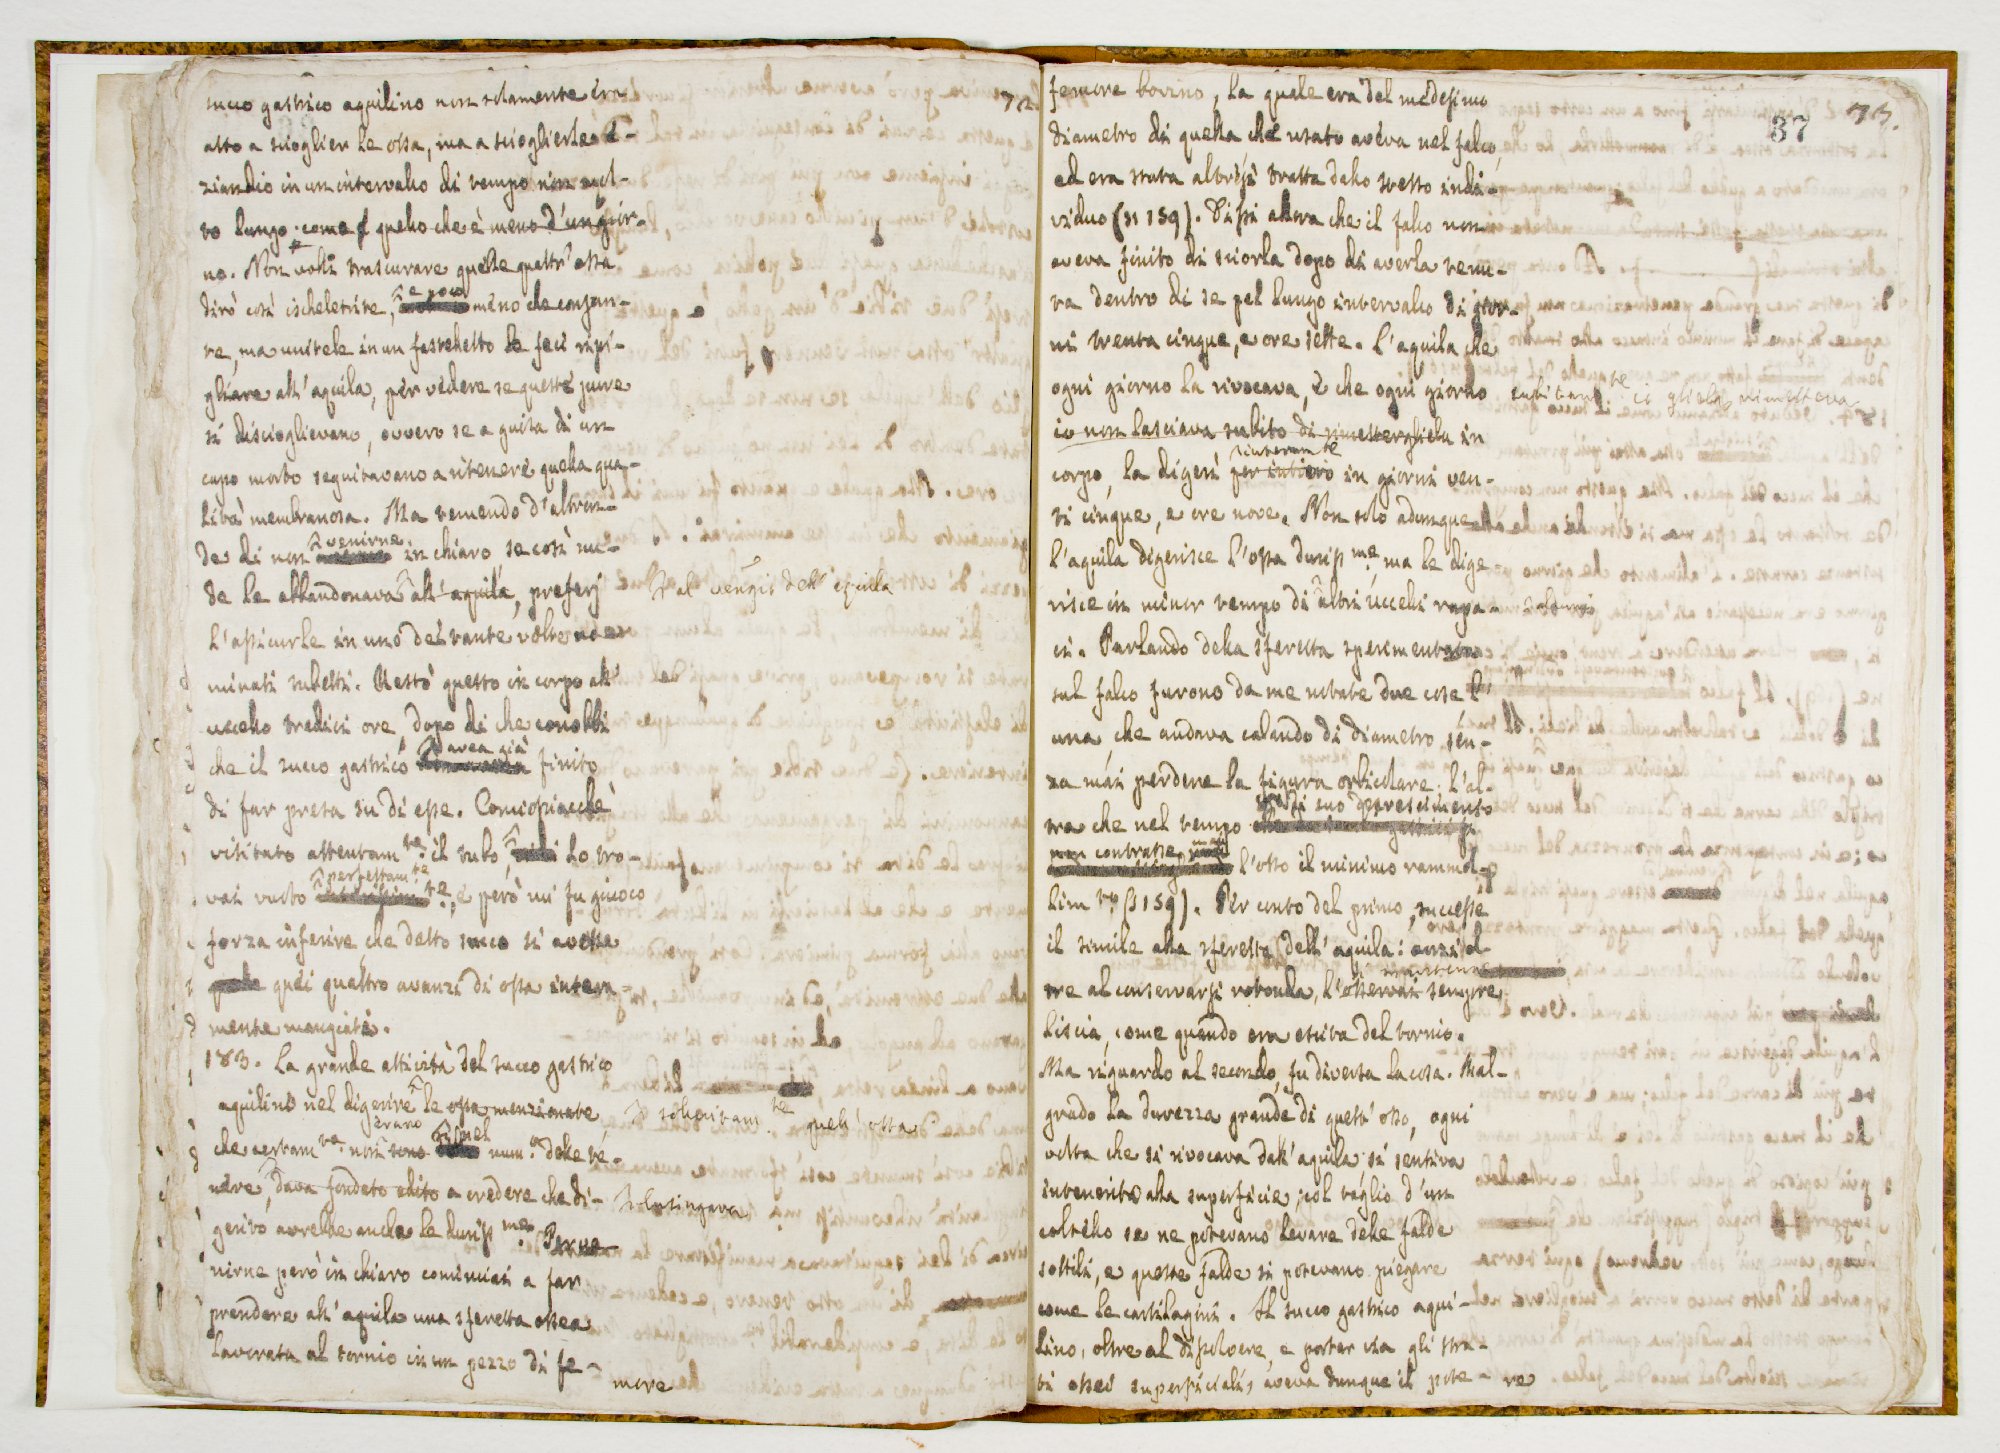 72
succo gastrico aquilino non solamente era
atto a scioglier le ossa, ma a scioglierle e-
ziandio in un intervallo di tempo non mol-
to lungo come quello che è meno d'un gior-
no. Non volli trascurare queste quattr'ossa
e poco
dirò così ischeletrite, meno che consun-
te, ma unitele in un fastelletto le feci ripi-
gliare all'aquila, per vedere se queste pure
si discioglievano, ovvero se a guisa di un
capo morto seguitavano a ritenere quella qua-
lità membranosa. Ma temendo d'altron-
venirne
de di non in chiaro se così nu-
de le abbandonava all'aquila, preferj
al ventr. dell'aquila
l'assicurle in uno dei tante volte no-
minati tubetti. Restò questo in corpo all'
uccello tredici ore, dopo di che conobbi
avea già
che il succo gastrico finito
di far presa su di esse. Conciossiacchè
visitato attentam.te il tubo, lo tro-
perfettam.te
vai vuoto e però mi fu giuoco
forza inferire che detto succo si avesse
quei quattro avanzi di ossa intera-
mente mangiati.
183. La grande attività del succo gastrico
aquilino nel digerire le ossa menzionate
solecitam.te quell'ossa
erano nel
che certam.te non sono num.o delle te-
nere, dava fondato adito a credere che di-
lusingava
gerito avrebbe anche le duriss.me Per ve-
nirne però in chiaro cominciai a far
prendere all'aquila una sferetta ossea
lavorata al tornio in un pezzo di fe-
more
37 73.
femore bovino, la quale era del medesimo
diametro di quella che usato aveva nel falco,
ed era stata altresì tratta dallo stesso indi-
viduo (n 159). Dissi allora che il falco non
aveva finito di sciorla dopo di averla tenu-
ta dentro di se pel lungo intervallo di gior-
ni trenta cinque, e ore sette. L'aquila che
ogni giorno la rivocava, e che ogni giorno
subitam.te io gliela rimetteva
io non lasciava subito di rimettergliela in
interam.te
corpo, la digerì per intiero in giorni ven-
ti cinque, e ore nove. Non solo adunque
l'aquila digerisce l'ossa duriss.me ma le dige-
risce in minor tempo di altri uccelli rapa-
ci. Parlando della sferetta sperimentata
sul falco furono da me notate due cose l'
una, che andava calando di diametro sen-
za mai perdere la figura orbiculare: l'al-
di suo decrescimento
tra che nel tempo
non contrasse mai
l'osso il minimo rammol-
lim.to (§ 159). Per conto del primo, successe
il simile alla sferetta dell'aquila: anzi ol-
tre al conservarsi rotonda, l'osservai sempre
liscia, come quando era escita del tornio.
Ma riguardo al secondo, fu diversa la cosa. Mal-
grado la durezza grande di quest'osso, ogni
volta che si rivocava dall'aquila si sentiva
intenerito alla superficie; col taglio d'un
coltello se ne potevano levare delle falde
sottili, e queste falde si potevano piegare
come le cartilagini. Il succo gastrico aqui-
lino, oltre al dissolvere, e portar via gli stra-
ti ossei superficiali, aveva dunque il pote-
re